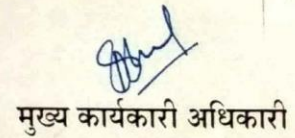 मुख्य कार्यकारी अधिकारी